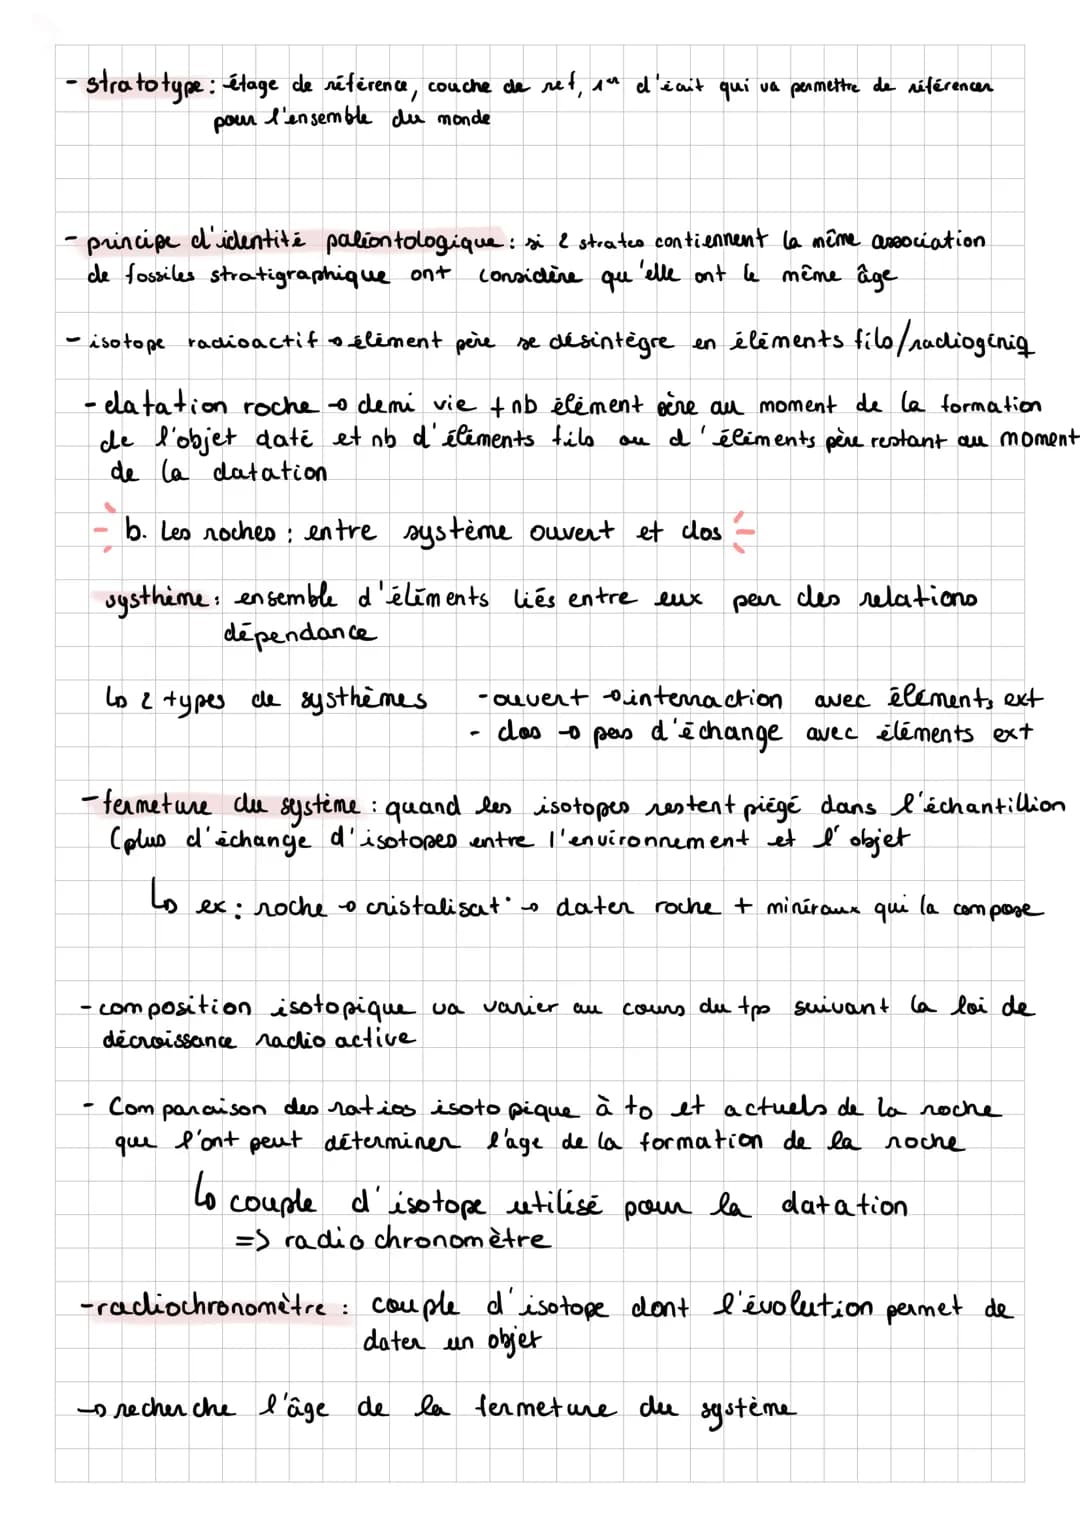 - stratotype : étage de référence, couche de ref, 1er d'écrit qui va permettre de référencer
pour l'ensemble du monde
- principe d'identité paléontologique : si 2 strates contiennent la même association
de fossiles stratigraphique ont considère qu'elle ont le même âge
- isotope radioactif → élément père se désintègre en éléments fils/radiogéniq
- datation roche → demi vie + nb élément père au moment de la formation
de l'objet daté et nb d'éléments fils ou d'éléments père restant au moment
de la datation
b. Les roches : entre système ouvert et clos
systhème : ensemble d'éléments liés entre eux par des relations
dépendance
↳ 2 types de systhèmes - ouvert → internaction avec éléments ext
- clos → pas d'échange avec éléments ext
- fermeture du système : quand les isotopes restent piégé dans l'échantillion
(plus d'échange d'isotopes entre l'environnement et l'objet
↳ ex : roche → cristalisat° → dater roche + minéraux qui la compose
- composition isotopique va varier au cours du tps suivant la loi de
décroissance radioactive
- Comparaison des ratios isotopique à to et actuels de la roche
que l'ont peut déterminer l'age de la formation de la roche
↳ couple d'isotope utilisé pour la datation
=> radiochronomètre
- radiochronomètre : couple d'isotope dont l'évolution permet de
dater un objet
→ recherche l'âge de la fermeture du système